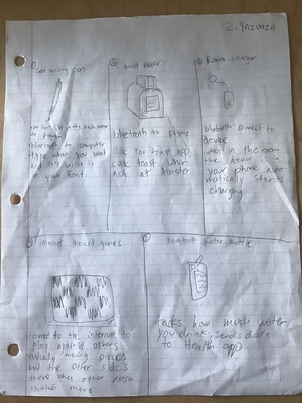 Z. Ynzunza
Self-writing pen
bluetooth to computer
type what you want
and it'll write it
in your font.
toast maker
bluetooth to phone
click the toast app
code toast when
not at toaster
Room charger
bluetooth connect to
device
when in the room
the device is in
your phone auto-
matically starts
charging
Internet board games
connect to the internet to
play against others
moving pieces
but the other side's
move when other person
makes move
bluetooth water bottle
tracks how much water
you drink, sends data
to Health app